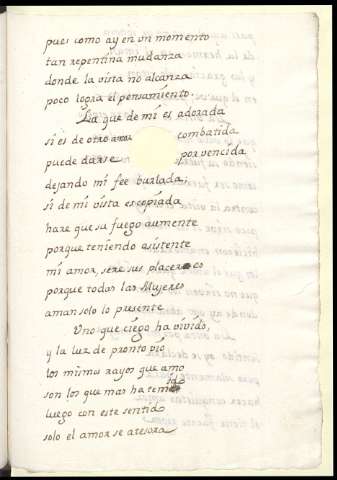 pues como ay en un momento
tan repentina mudanza
donde la vista no alcanza
poco logra el pensamiento.
La que de mi es adorada
si es de otro amor combatida
puede darse por vencida
dejando mi fee burlada;
si de mi vista es copiada
hare que su fuego aumente
porque teniendo asistente
mi amor, sere sus placeres
porque todas las Mujeres
aman solo lo presente
Uno que ciego ha vivido,
y la luz de pronto vio
los mismos rayos que amo
son los que mas ha temido
luego con este sentido
solo el amor se atesora